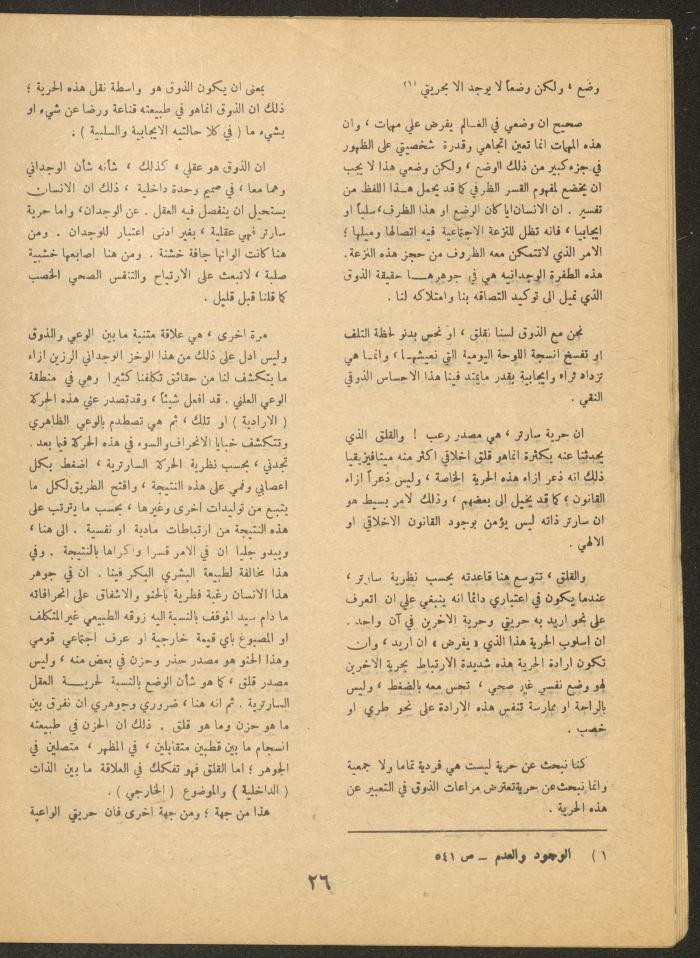 وضع ، ولكن وضعاً لا يوجد الا بحريتي (١)
صحيح ان وضعي في العالم يفرض علي مهمات ، وان
هذه المهمات انما تعين اتجاهي وقدرة شخصيتي على الظهور
في جزء كبير من ذلك الوضع ، ولكن وضعي هذا لا يجب
ان يخضع لمفهوم القسر الظرفي كما قد يحمل هذا اللفظ من
تفسير . ان الانسان ايا كان الوضع او هذا الظرف ، سلبياً او
ايجابيا ، فانه تظل للنزعة الاجتماعية فيه اتصالها وميلها ؛
الامر الذي لا تتمكن معه الظروف من حجز هذه النزعة .
هذه الطفرة الوجدانيه هي في جوهرهـــا حقيقة الذوق
الذي تميل الى توكيد التصاقه بنا وامتلاكه لنا .
نحن مع الذوق لسنا نقلق ، او نحس بدنو لحظة التلف
او تفسخ انسجة اللوحة اليومية التي نعيشهـا ، وانمـا هي
تزداد ثراء وايجابية بقدر مايمتد فينا هذا الاحساس الذوقي
النقي .
ان حرية سارتر ، هي مصدر رعب ! والقلق الذي
يحدثنا عنه بكثرة انماهو قلق اخلاقي اكثر منه ميتافيزيقيا
ذلك انه ذعر ازاء هذه الحرية الخاصة ، وليس ذعراً ازاء
القانون ، كما قد يخيل الى بعضهم ، وذلك لامر بسيط هو
ان سارتر ذاته ليس يؤمن بوجود القانون الاخلاقي او
الالهي .
والقلق ، تتوسع هنا قاعدته بحسب نظرية سارتر ،
عندما يكون في اعتباري دائما انه ينبغي علي ان اتعرف
على نحو اريد به حريتي وحرية الآخرين في آن واحد .
ان اسلوب الحرية هذا الذي « يفرض » ان اريد ، وان
تكون ارادة الحرية هذه شديدة الارتباط بحرية الآخرين
لهو وضع نفسي غير صحي ، تحس معه بالضغط ، وليس
بالراحة او ممارسة تنفس هذه الارادة على نحو طري او
خصب .
كنا نبحث عن حرية ليست هي فردية تماما ولا جمعية
وانما نبحث عن حرية تعترض مراعات الذوق في التعبير عن
هذه الحرية .
١ ) الوجود والعدم – ص ٥٤١
بمعنى ان يكون الذوق هو واسطة نقل هذه الحرية ؛
ذلك ان الذوق انماهو في طبيعته قناعة ورضا عن شيء او
بشيء ما ( في كلا حالتيه الايجابية والسلبية ) .
ان الذوق هو عقلي ، كذلك ، شأنه شأن الوجداني
وهما معا ، في صميم وحدة داخلية ، ذلك ان الانسان
يستحيل ان ينفصل فيه العقل . عن الوجدان ، واما حرية
سارتر فهي عقلية ، بغير ادنى اعتبار للوجدان . ومن
هنا كانت الوانها جافة خشنة . ومن هنا اصابعها خشبية
صلبة ، لا تبعث على الارتياح والتنفس الصحي الخصب
كما قلنا قبل قليل .
مرة اخرى ، هي علاقة متنية ما بين الوعي والذوق
وليس ادل على ذلك من هذا الوخز الوجداني الرزين ازاء
ما يتكشف لنا من حقائق تكلفنا كثيرا وهي في منطقة
الوعي العلني . قد افعل شيئاً ، وقد تصدر عني هذه الحركة
( الارادية ) او تلك ، ثم هي تصطدم بالوعي الظاهري
وتتكشف خبايا الانحراف والسوء في هذه الحركة فيما بعد .
تجدني ، بحسب نظرية الحركة السارترية ، اضغط بكل
اعصابي وفمي على هذه النتيجة ، وافتح الطريق لكل ما
يتبع من توليدات اخرى وغيرها ، بحسب ما يترتب على
هذه النتيجة من ارتباطات مادية او نفسية . الى هنا ،
ويبدو جليا ان في الامر قسرا واكراها بالنتيجة . وفي
هذا مخالفة لطبيعة البشري البكر فينا . ان في جوهر
هذا الانسان رغبة فطرية بالحنو والاشفاق على انحرافاته
ما دام سيد الموقف بالنسبة اليه زوقه الطبيعي غير المتكلف
او المصبوغ باي قيمة خارجية او عرف اجتماعي قومي
وهذا الحنو هو مصدر حذر وحزن في بعض منه ، وليس
مصدر قلق ، كما هو شأن الوضع بالنسبة لحريـــة العقل
السارترية . ثم انه هنا ، ضروري وجوهري ان نفرق بين
ما هو حزن وما هو قلق . ذلك ان الحزن في طبيعته
انسجام ما بين قطبين متقابلين ، في المظهر ، متصلين في
الجوهر ؛ اما القلق فهو تفكك في العلاقة ما بين الذات
( الداخلية ) والموضوع ( الخارجي ) .
هذا من جهة ؛ ومن جهة اخرى فان حريتي الواعية
٢٦